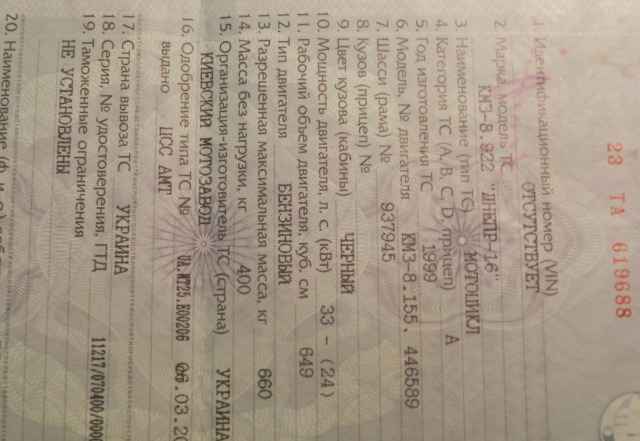 23 ТА 619688
1. Идентификационный номер (VIN) ОТСУТСТВУЕТ
2. Марка, модель ТС КМЗ-8.922 "ДНЕПР-16"
3. Наименование (тип ТС) МОТОЦИКЛ
4. Категория ТС (А, В, С, D, прицеп) А
5. Год изготовления ТС 1999
6. Модель, № двигателя КМЗ-8.155. 446589
7. Шасси (рама) № 937945
8. Кузов (прицеп) №
9. Цвет кузова (кабины) ЧЕРНЫЙ
10. Мощность двигателя, л. с. (кВт) 33 - (24)
11. Рабочий объем двигателя, куб. см 649
12. Тип двигателя БЕНЗИНОВЫЙ
13. Разрешенная максимальная масса, кг 660
14. Масса без нагрузки, кг 400
15. Организация-изготовитель ТС (страна) УКРАИНА
КИЕВСКИЙ МОТОЗАВОД
16. Одобрение типа ТС № UA.MT25.E00206 06.03.20
выдано ЦСС АМТ
17. Страна вывоза ТС УКРАИНА
18. Серия, № удостоверения, ГТД 11217/070400/000
19. Таможенные ограничения
НЕ УСТАНОВЛЕНЫ
20. Наименование (ф. и. о.)